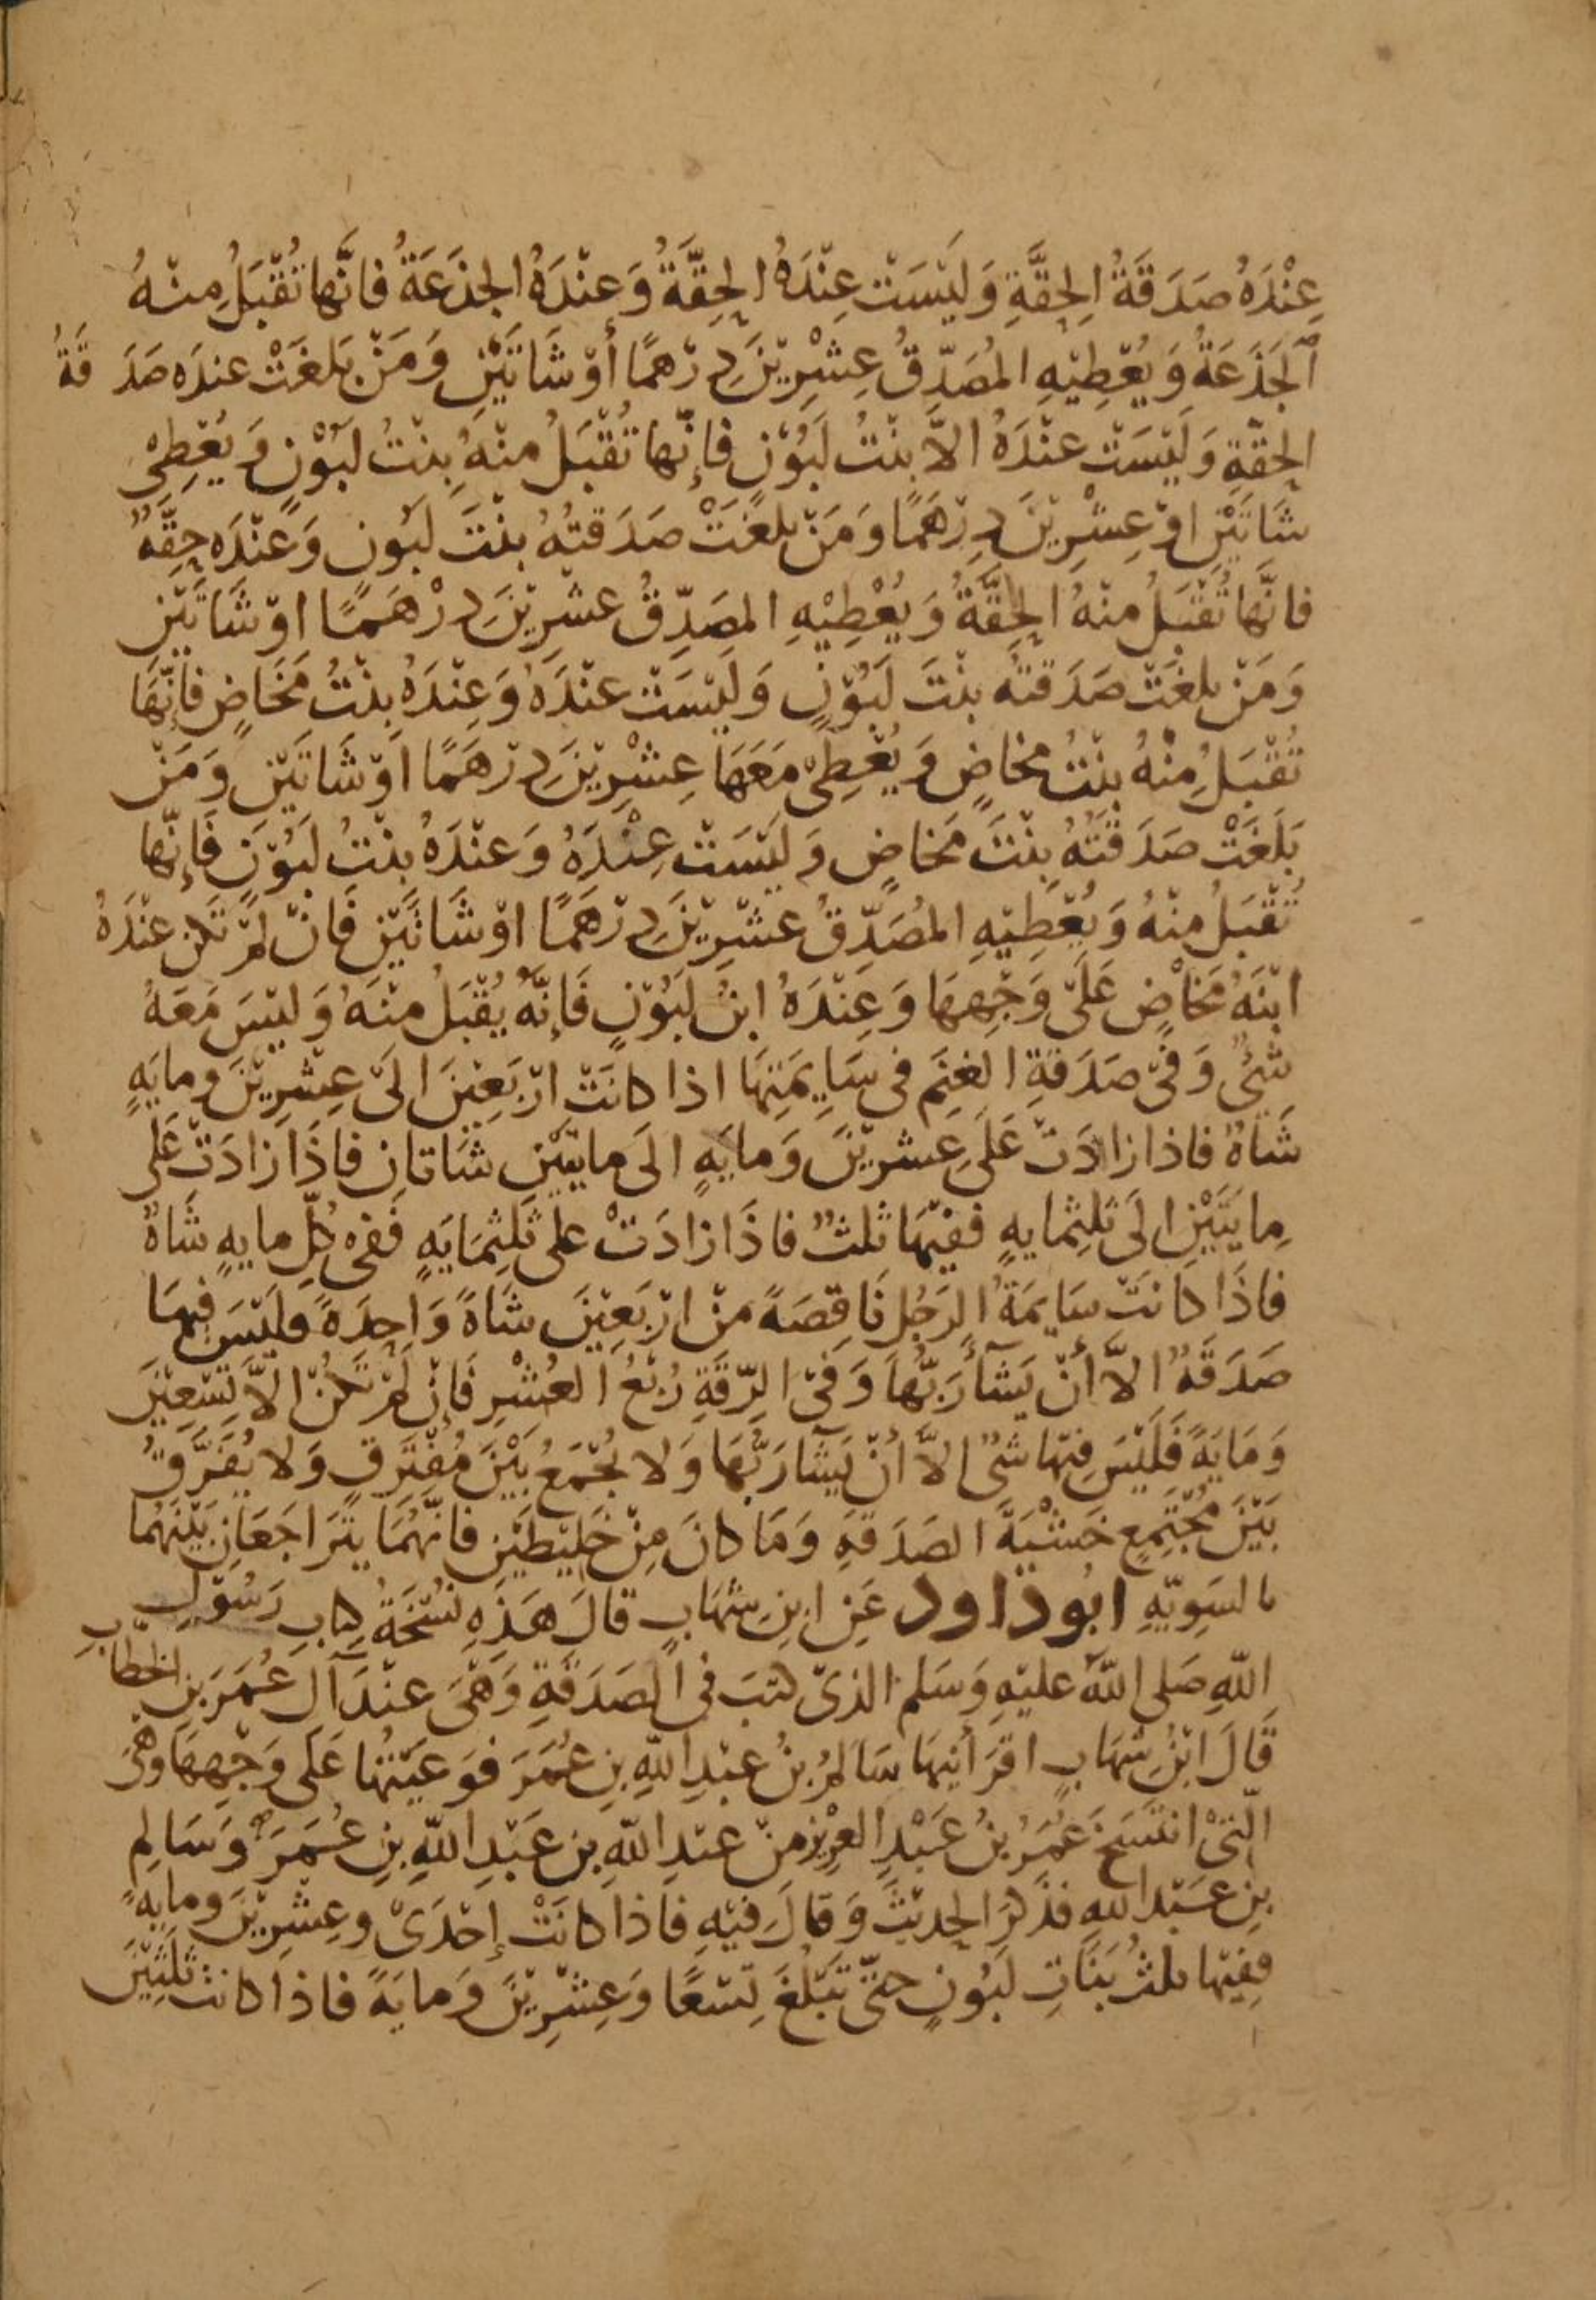 عِنْدَهُ صَدَقَةُ الحِقَّةِ وَلَيْسَتْ عِنْدَهُ الحِقَّةُ وَعِنْدَهُ الجَذَعَةُ فانَّها تُقْبَلُ مِنْهُ
الجَذَعَةُ وَيُعْطِيْهِ المُصَدِّقُ عِشْرِيْنَ دِرْهَمًا أَوْ شَاتَيْنِ وَمَنْ بَلَغَتْ عندَه صَدَقَةُ
الحِقّةِ وَلَيْسَتْ عنْدَهُ الاَّ بنْتُ لَبُوْنٍ فإنّها تُقْبَلُ منْهُ بِنْتُ لَبُوْنٍ وَيُعْطِىْ
شَاتَيْنِ اوْ عِشْرِيْنَ دِرْهَمًا وَمَنْ بلغَتْ صَدَقتُهُ بنْتَ لَبُونٍ وَعنْدَه حِقَّةٌ
فانَّها تُقْبَلُ منْهُ الحِقَّةُ وَيُعْطِيْهِ المصَدِّقُ عشْرِيْنَ دِرْهَمًا اوْ شَاتَيْن
وَمَنْ بلغَتْ صَدَقتُه بنْتَ لَبُوْنٍ وَلَيْسَتْ عنْدَهُ وَعِنْدَهُ بِنْتُ مَخَاضٍ فإنَّهَا
تُقْبَلُ مِنْهُ بنْتُ مخاضٍ وَيُعْطِىْ مَعَهَا عِشْرِيْنَ دِرْهَمًا اَوْ شَاتَيْنِ وَمَنْ
بَلَغَتْ صَدَقَتُهُ بِنْتَ مَخاضٍ وَلَيْسَتْ عِنْدَهُ وَعنْدَهُ بنْتُ لَبُوْنٍ فَإنّها
تُقْبَلُ منْهُ وَيُعْطِيْهِ المُصَدِّقُ عشْرِيْنَ دِرْهَمًا اوْ شَاتَيْنِ فَانْ لَمْ تَكُنْ عنْدَهُ
ابْنَةُ مَخَاضٍ عَلَى وَجْهِهَا وَعِنْدَهُ ابنُ لَبُوْنٍ فَإنَّه يُقْبَلُ منْهُ وَليْسَ مَعَهُ
شَىْءٌ وَفىْ صَدَقةِ الغنَمِ فى سَايِمَتِهَا اذا كانَتْ ارْبَعِيْنَ الىَ عِشْرِيْنَ ومايَةٍ
شَاةٌ فاذا زادَتْ عَلَى عشريْنَ وَمايَةٍ الَى مايتَيْنِ شَاتان فاذَا زادَتْ عَلى
مِايَتَيْنِ الَى ثَلثِمايةٍ ففيْهَا ثلثٌ فاذَا زادَتْ على ثَلثِمَايَةٍ فَفى كُلِّ مايةٍ شَاةٌ
فاذَا كانَتْ سَايمَةُ الرَجُلِ نَاقِصَةً منْ ارْبَعِيْنَ شَاةً وَاحِدَةً فلَيْسَ فيهَا
صَدَقَةٌ الاَّ أنْ يَشآءَ رَبُّهَا وَفىْ الرِّقَةِ رُبْعُ العُشْرِ فَإنْ لَمْ تَكُنْ الاَّ تِسْعِيْنَ
وَمَايَةً فَلَيْسَ فيْهَا شىٌ الاَّ أنْ يَشَآءَ رَبُّهَا وَلا يُجْمَعُ بَيْنَ مُفْتَرِقٍ وَلا يُفَرَّقُ
بَيْنَ مُجْتَمِعٍ خَشْيَةَ الصَدَقةِ وَمَا كانَ مِنْ خَلِيْطَيْنِ فانَّهُمَا يتَرَاجَعَانِ بَيْنَهُمَا
بالسَوِيّةِ ابُوداود عَنِ ابنِ شهَابٍ قالَ هَذِه نُسْخَةُ كِتابِ رَسُوْلِ
اللهِ صَلى اللهُ عليْهِ وَسَلم الذىْ كتَبَ فى الصَدَقةِ وَهْىَ عنْدَ آل عُمَرَ بنِ الخطّابِ
قَالَ ابْنُ شهَابٍ اقرَأنِيهَا سَالمُ بنُ عبْدِ اللهِ بنِ عُمَرَ فوَعَيْتُها عَلَى وَجْهِهَا وَهْىَ
الّتىْ انْتَسَخَ عُمَرُ بنُ عَبْدِ العزِيْزِ منْ عبْدِ اللهِ بنِ عَبْدِ اللهِ بنِ عُمَرَ وَسَالِم
بنِ عَبْد اللهِ فذكَرَ الحديْثَ وَقالَ فيْهِ فاذا كانَتْ إحْدَىْ وعِشْرِيْنَ ومايةً
ففِيْها ثلثُ بَنَاتِ لَبُونٍ حتّى تَبْلُغَ تِسْعًا وَعِشْرِيْنَ وَمايَةً فاذَا كانَتْ ثَلَثِيْنَ